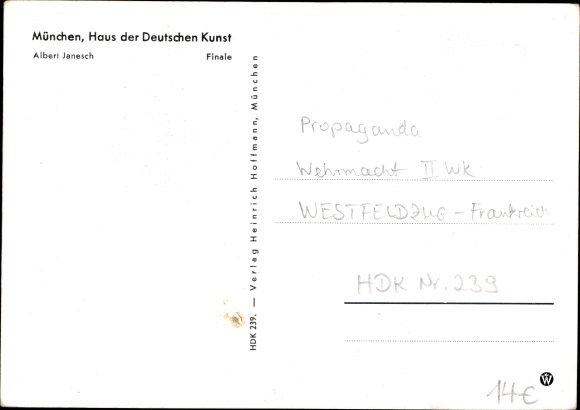 München, Haus der Deutschen Kunst
Albert Janesch Finale
HDK 239. — Verlag Heinrich Hoffmann, München
Propaganda
Wehrmacht II WK
WESTFELDZUG - Frankreich
HDK Nr. 239
14€
W